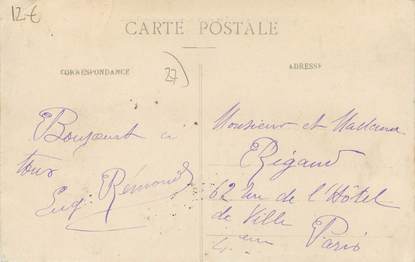 12€
CARTE POSTALE
CORRESPONDANCE
27
ADRESSE
Bonjour à
tous
Eug. Rémond
Monsieur et Madame
Rigaud
62 rue de l'Hôtel
de Ville
Paris